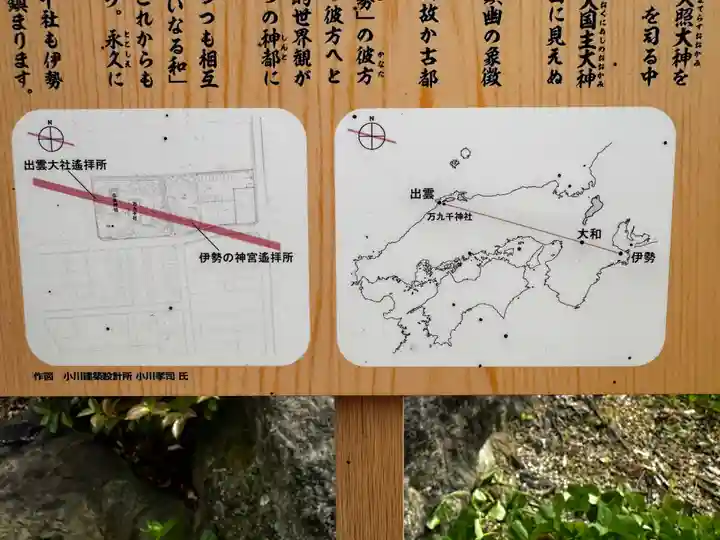 天照大神を
を司る中
大国主大神
に見えぬ
幽の象徴
故か古都
勢」の彼方
彼方へと
的世界観が
つの神都に
つも相互
いなる和」
これからも
。永久に
社も伊勢
鎮まります。
N
出雲大社遙拝所
伊勢の神宮遙拝所
作図 小川建築設計所 小川孝司 氏
N
出雲
万九千神社
大和
伊勢